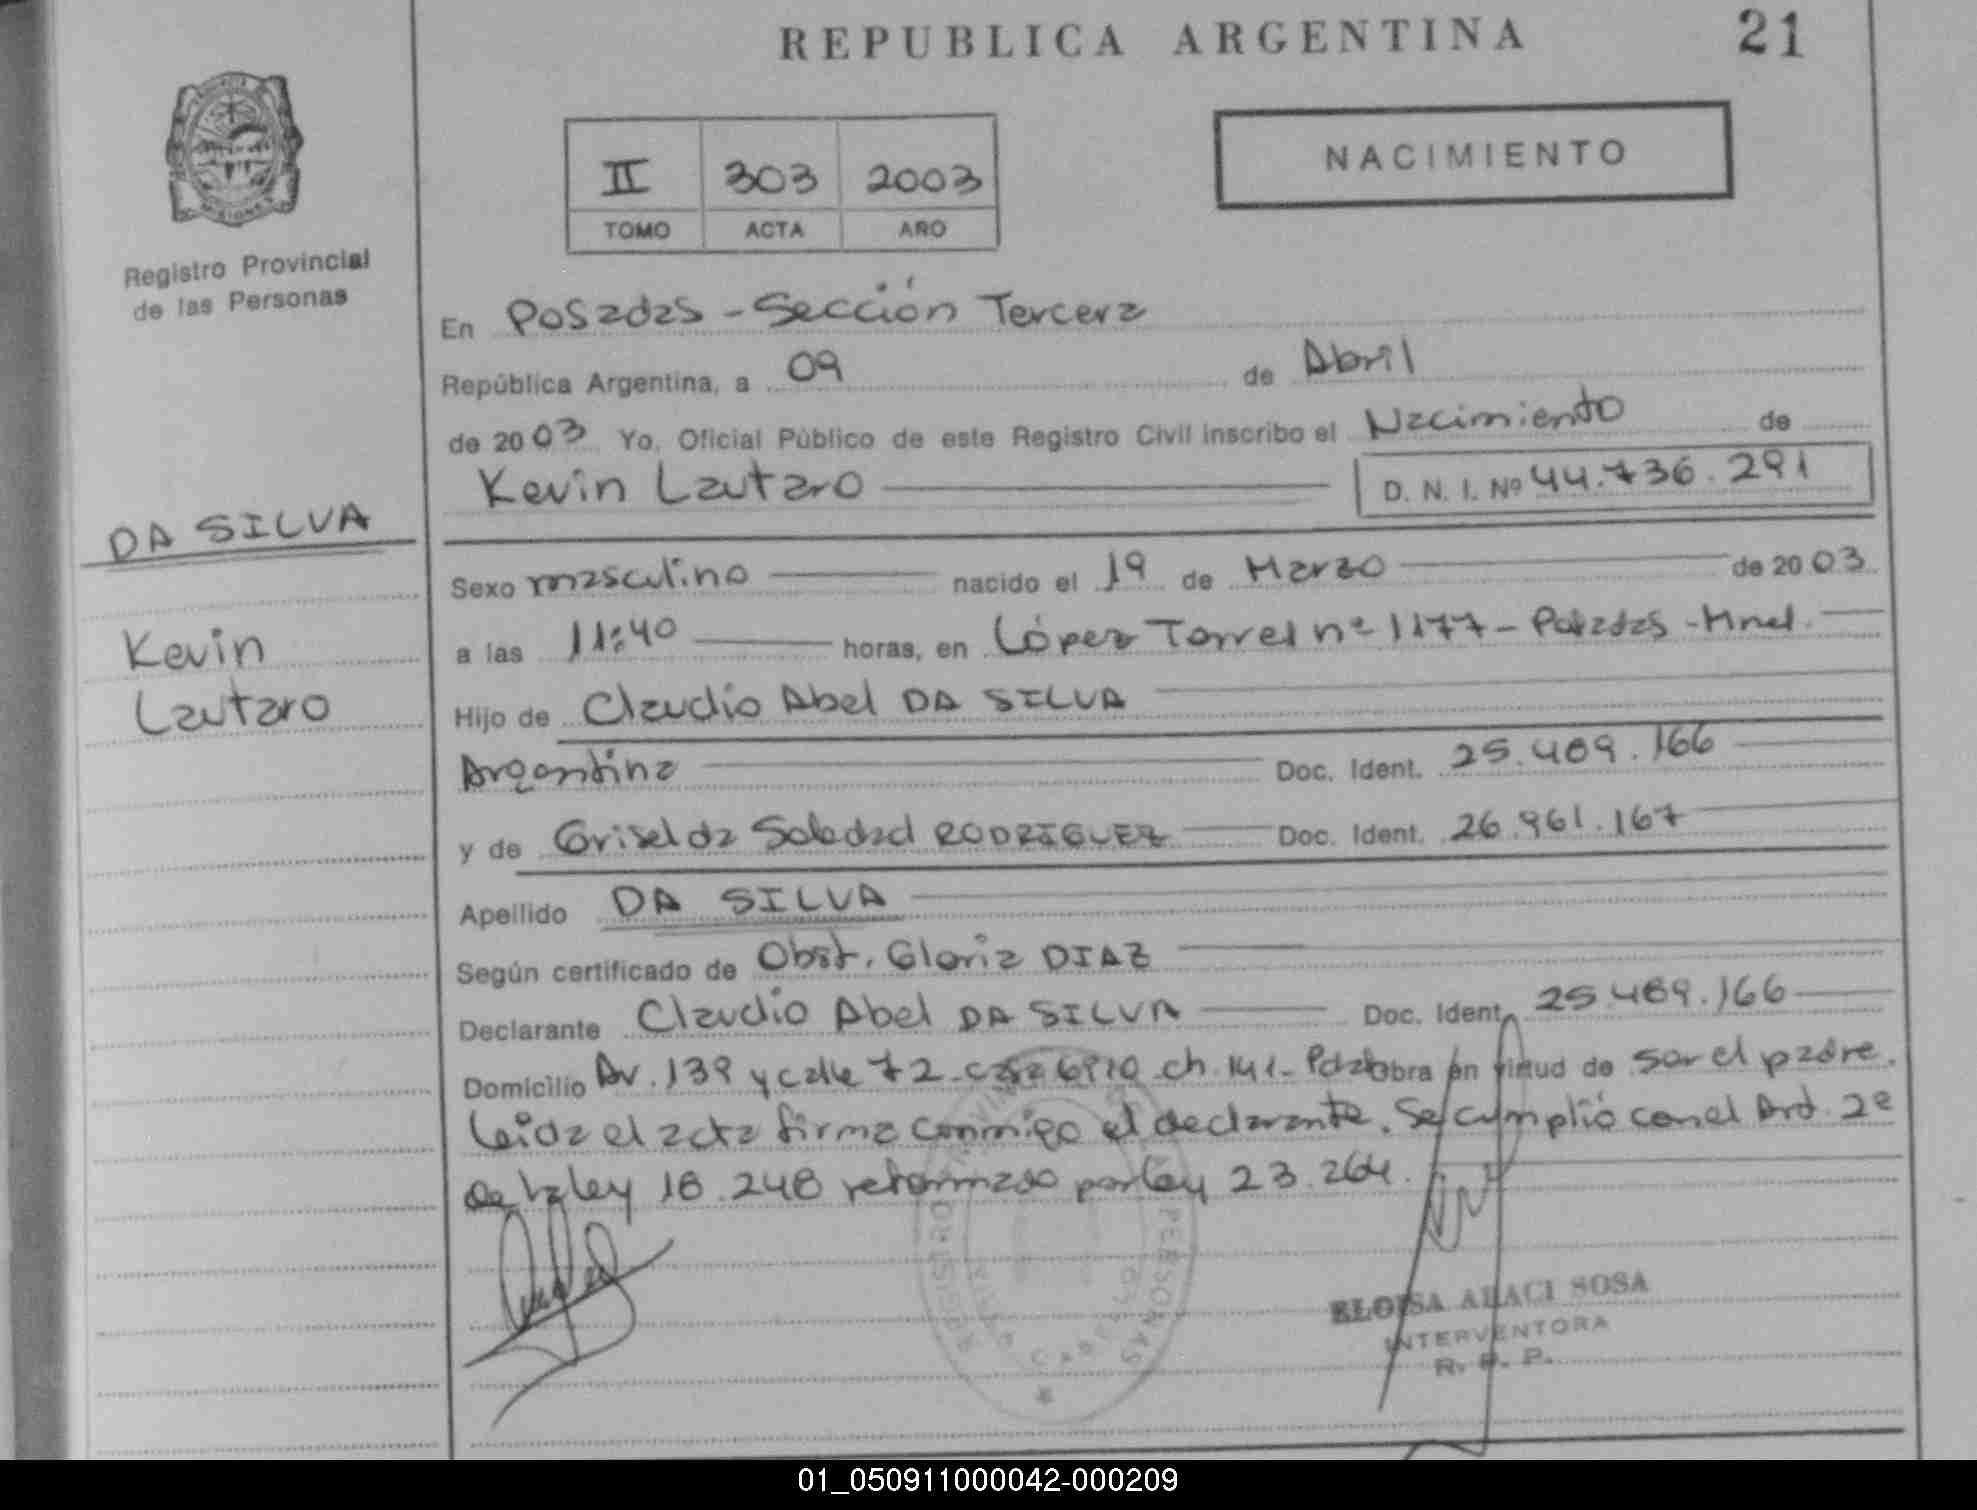 REPUBLICA ARGENTINA
21
II 303 2003
TOMO ACTA AÑO
NACIMIENTO
Registro Provincial
de las Personas
En Posadas - Sección Tercera
República Argentina, a 09 de Abril
de 2003 Yo, Oficial Público de este Registro Civil inscribo el Nacimiento de
Kevin Lautaro D. N. I. Nº 44.736.291
DA SILVA
Kevin
Lautaro
Sexo masculino nacido el 19 de Marzo de 2003
a las 11:40 horas, en López Torres nº 1177 - Posadas - Mnes.
Hijo de Claudio Abel DA SILVA
Argentina Doc. Ident. 25.489.166
y de Griselda Soledad RODRIGUEZ Doc. Ident. 26.961.167
Apellido DA SILVA
Según certificado de Obst. Gloria DIAZ
Declarante Claudio Abel DA SILVA Doc. Ident. 25.489.166
Domicilio Av. 139 y calle 72 - casa ch. 141 - Obra en virtud de ser el padre.
Leída el acta firma conmigo el declarante. Se cumplió con el Art. 2º
de la ley 18.248 reformado por ley 23.264.
ELOISA ALACI SOSA
INTERVENTORA
R. P. P.
01_050911000042-000209